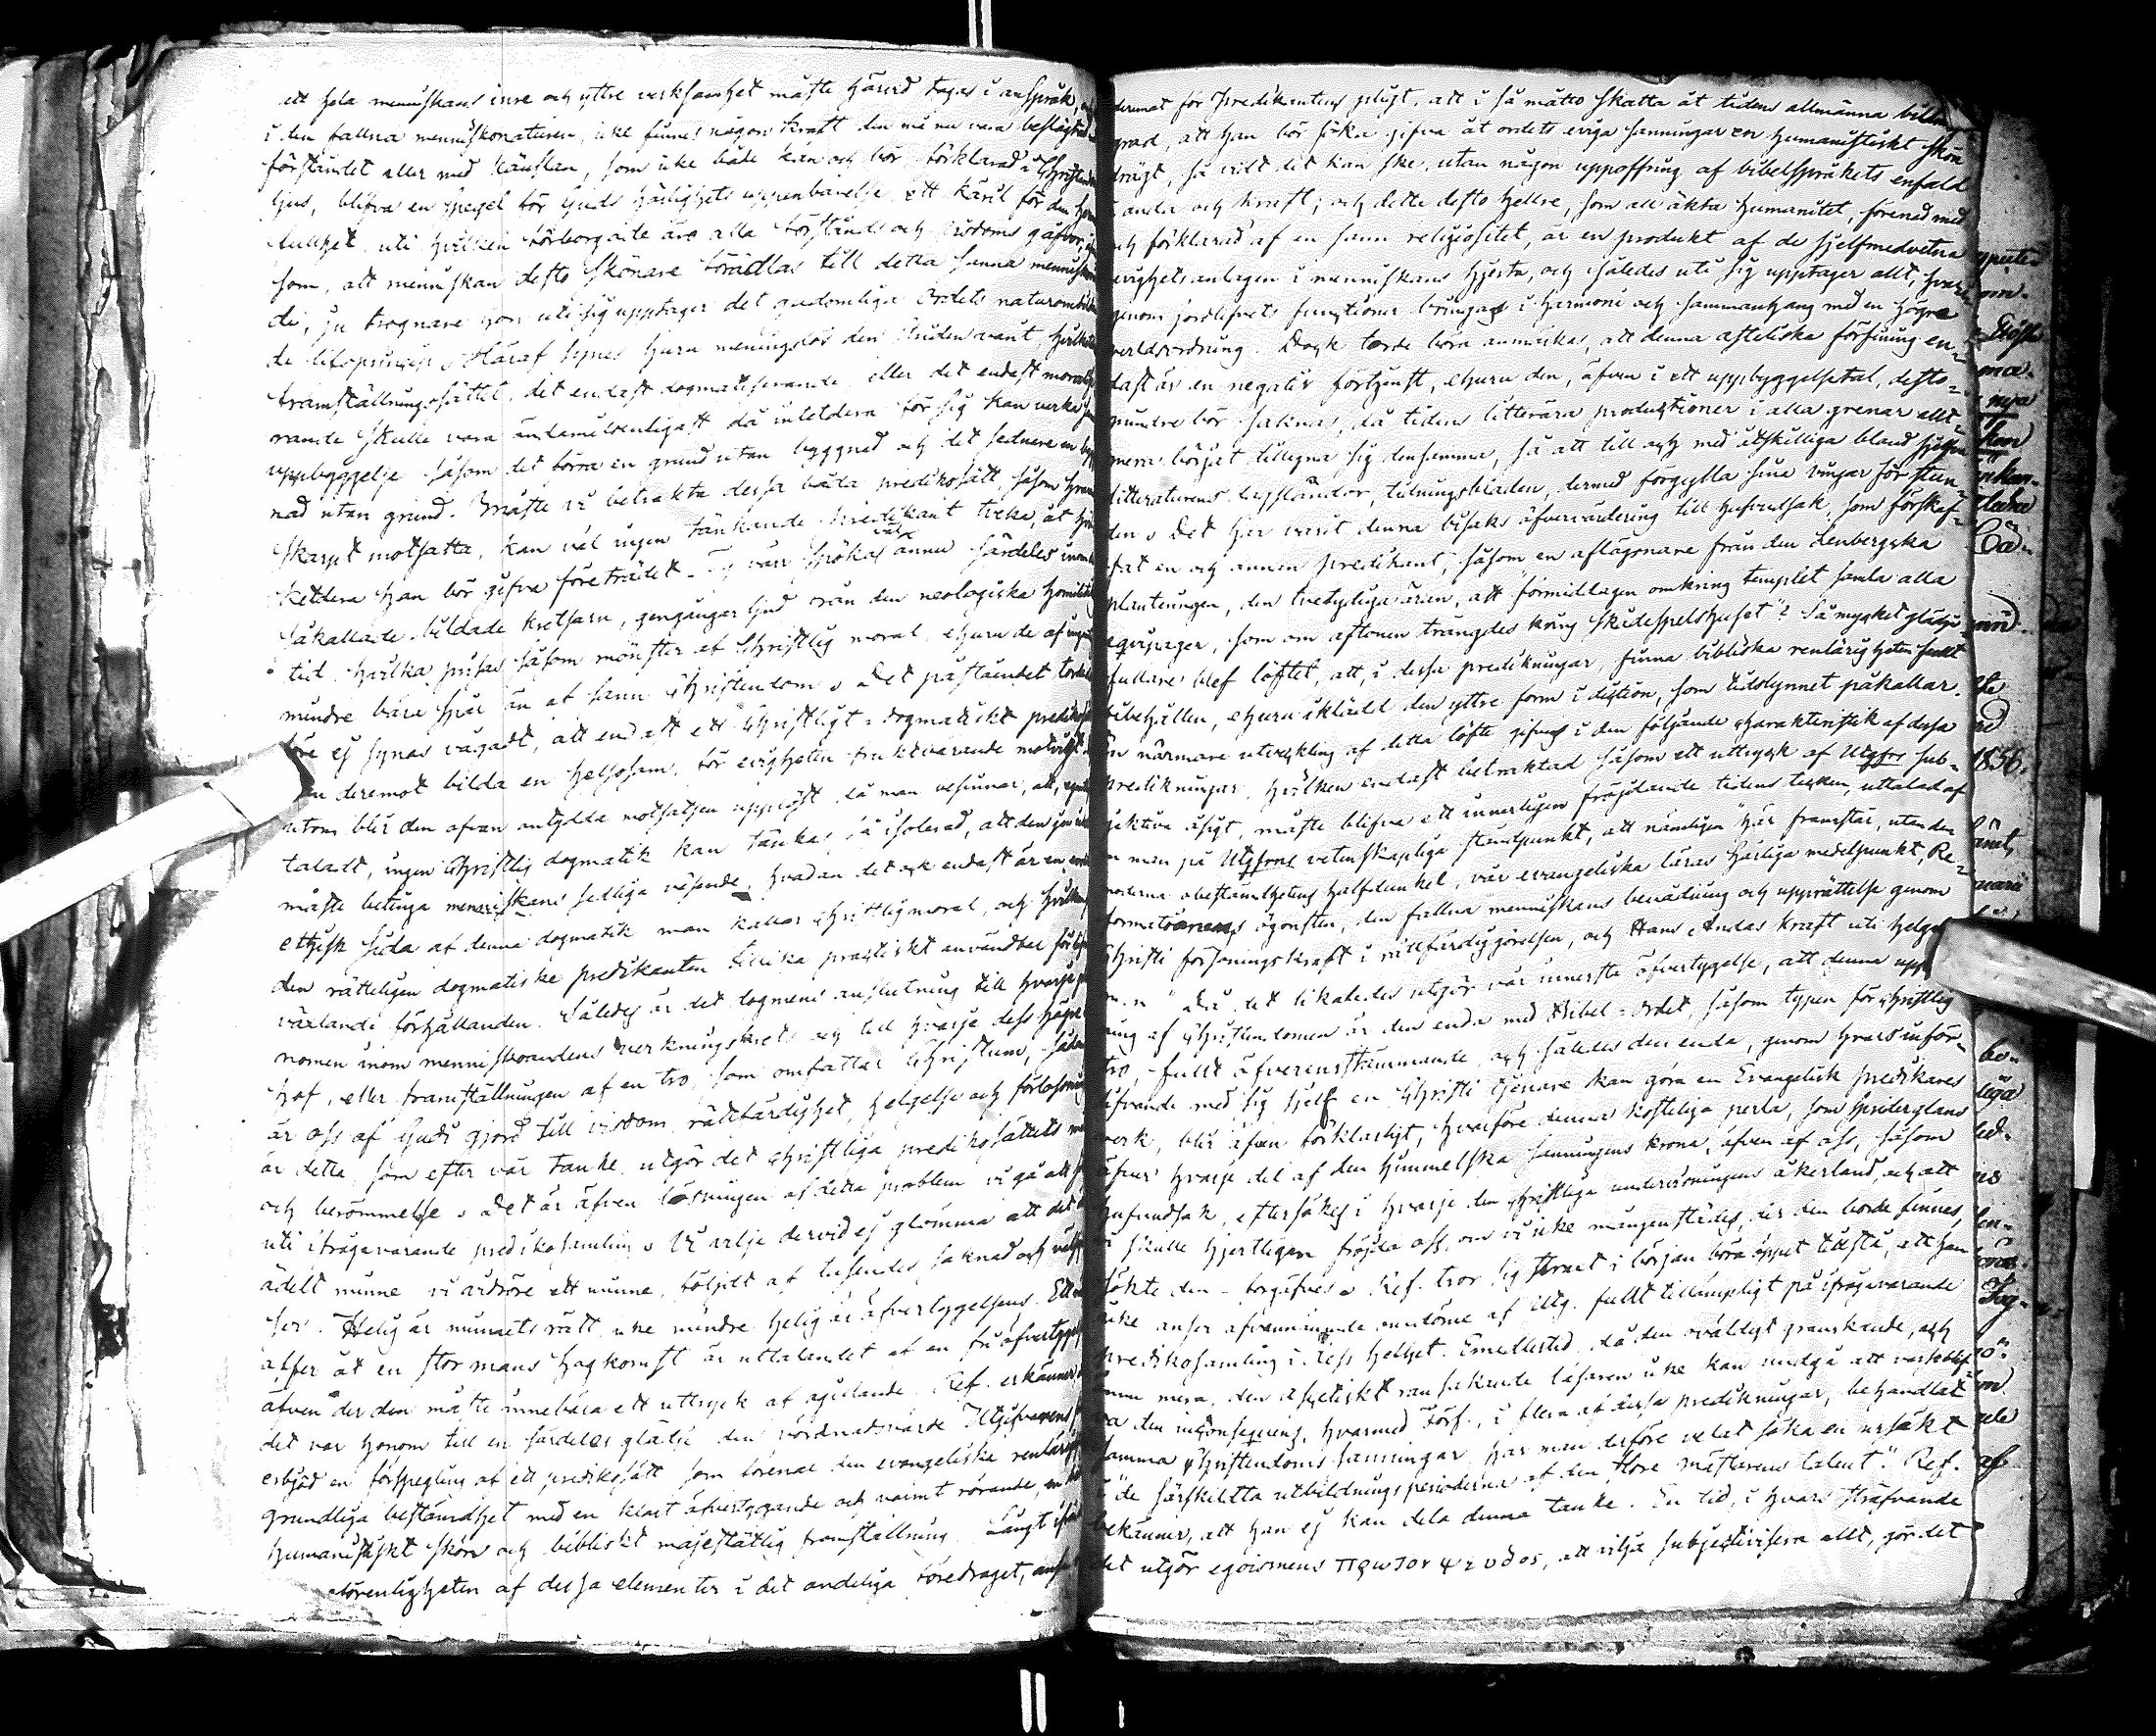 ett hela menniskans inre och yttre verksamhet måste härvid tagas i anspråk, och
i den fallna menniskonaturen, icke finnes någon kraft den må nu vara beslägtad
förståndet eller med känslan, som icke både kan och bör förklarad i Christendo
ljus, blifva en spegel för Guds härlighets uppenbarelse, ett käril för den
fullhet uti hvilken förborgade äro alla förstånds och visdoms gåfvor,
som, att menniskan desto skönare förädlas till detta sanna
de, ju trognare hon uti sig upptager det gudomliga Ordets
de lifsprincip. Häraf synes huru meningslös den
framställningssättet, det endast dogmatiserande eller det endast
rande skulle vara ändamålsenligast då intetdera för sig kan verka
uppbyggelse såsom det förra en grund utan byggnad och det sednare en
nad utan grund. Måste vi betrakta dessa båda predikosätt, såsom
skarpt motsatta, kan väl ingen tänkande predikant tveka, åt
ketdera han bör gifva företrädet. Ty väl spöka ännu särdeles inom
såkallade bildade kretsarn, gengångarljud från den neologiska
tid, hvilka prisas såsom mönster af Christlig moral, ehuru de af
mindre bära spår än af sann Christendom. Det påståendet torde
före ej synas vågadt, att endast ett Christligt-dogmatiskt
kan deremot bilda en helsosam, för evigheten fruktbärande motvigt.
utom blir den ofvan antydda motsatsen upplöst då man besinnar, att,
taladt, ingen Christlig dogmatik kan tänkas så isolerad, att den
måste betinga menniskans sedliga väsende, hvadan det ock endast är en
ethisk sida af denna dogmatik man kallar Christlig moral, och
den rätteligen dogmatiske predikanten tillika practiskt användbar
växlande förhållanden. Således är det dogmens anslutning till hvarje
nomen inom menniskoandens verkningskrets och till hvarje dess
hof, eller framställningen af en tro, som omfattar Christum,
är oss af Gudi gjord till visdom, rättfärdighet, helgelse och förlossning
är detta, som efter vår tanke utgör det christliga predikosättets
och berömmelse. Det är äfven lösningen af detta problem vi gå att
uti ifrågavarande predikosamling. Vi vilje dervid ej glömma att det
ädelt minne vi vidröre ett minne, följdt af tusendes saknad och
ser. Helig är minnets rätt icke mindre helig är öfvertygelsens.
offer åt en stor mans hågkomst är uttalandet af en fri öfvertygelse
äfven der den måste innebära ett uttryck af ogillande. Ref. erkänner
det var honom till en särdeles glädje den vördnadsvärde Utgifvarens
erbjöd en förspegling af ett predikosätt som förenar den evangeliska
grundliga bestämdhet med en klart öfvertygande och varmt rörande, en
humanistiskt skön och bibliskt majestätlig framställning. Långt
oförenligheten af dessa elementer i det andeliga föredraget,
dermot för Predikantens pligt, att i så måtto skatta åt tidens allmänna
grad, att han bör söka gifva åt ordets eviga sanningar en humanistiskt skön
drägt, så vidt det kan ske, utan någon uppoffring af bibelspråkets enfald
anda och kraft; och dette desto hellre, som all äkta humanitet, förenad med
och förklarad af en sann religiositet, är en produkt af de sjelfmedvetna
evighetsanlagen i menniskans hjerta, och således uti sig upptager allt,
genom jordlifvets functioner bringas i harmoni och sammanhang med en högre
verldsordning. Dock torde böra anmärkas, att denna asthetiska förfining en-
dast är en negativ förtjenst, ehuru den, äfven i ett uppbyggelsetal, desto
mindre bör saknas, då tidens litterära productioner i alla grenar allt-
mera börjat tillegna sig densamma, så att till och med åtskilliga bland sjelfva
litteraturens, tidningsbladen, dermed förgyllt sina vingar för
den. Det har varit denna bisaks öfvervärdering till hufvudsak, som förskaf-
fat en och annan predikant, såsom en aflägsnare från den Lenbergska
planteringen, den tvetydiga äran, att "förmiddagen omkring templet samla alla
equipager, som om aftonen trängdes kring skådespelshuset"? Så mycket glädje
fullare blef löftet, att, i dessa predikningar, finna bibliska renlärigheten fullt
bibehållen, ehuru iklädd den yttre form i diction, som tidslynnet påkallar.
En närmare utveckling af detta löfte gifves i den följande charakteristik af dessa
predikningar, hvilken endast betraktad såsom ett uttryck af Utgfns sub-
jektiva åsigt, måste blifva ett innerligen fröjdande tidens tecken, uttalad af
en man på Utgfrens vetenskapliga ståndpunkt, att nämligen "här framstår, utan den
moderna obestämdhetens halfdunkel, vår evangeliska läras herrliga medelpunkt, Re-
formationens ögonsten, den fallna menniskans benådning och upprättelse genom
Christi försoningskraft i rättfärdiggörelsen, och Hans Andas kraft uti
Då det likaledes utgör vår innersta öfvertygelse, att denna
ning af Christendomen är den enda med Bibel-Ordet, såsom typen för christlig
tro, fullt öfverensstämmande, och således den enda, genom hvars inför-
lifvande med sig sjelf en Christi tjenare kan göra en Evangelisk predikares
verk, blir äfven förklarligt, hvarföre denna kosteliga perla, som sprider glans
öfver hvarje del af den himmelska sanningens krona, äfven af oss, såsom
hufvudsak, eftersökes i hvarje den christliga undervisningens åkerland, och att
skulle hjertligen fröjda oss, om vi icke mångenstädes, der den borde finnas,
sökte den – förgäfves. Ref. tror sig strax i början böra öppet tillstå, att han
icke anser ofvannämnda omdöme af Utg. fullt tillämpligt på ifrågavarande
predikosamling i dess helhet. Emedlertid då den oväldigt granskande, och
ännu mera, den ascetiskt ransakande läsaren icke kan undgå att
va den inconseqvens, hvarmed Förf., i flera af dessa predikningar, behandlat
samma Christendoms sanningar, har man derföre velat söka en ursäkt
i "de särskilta utbildningsperioderna af den store mästarens talent". Ref.
bekänner, att han ej kan dela denna tanke. En tid, i hvars sträfvande
det utgör egoismens πρωτον ψευδος, att vilja subjectivisera allt, gör det
1856.